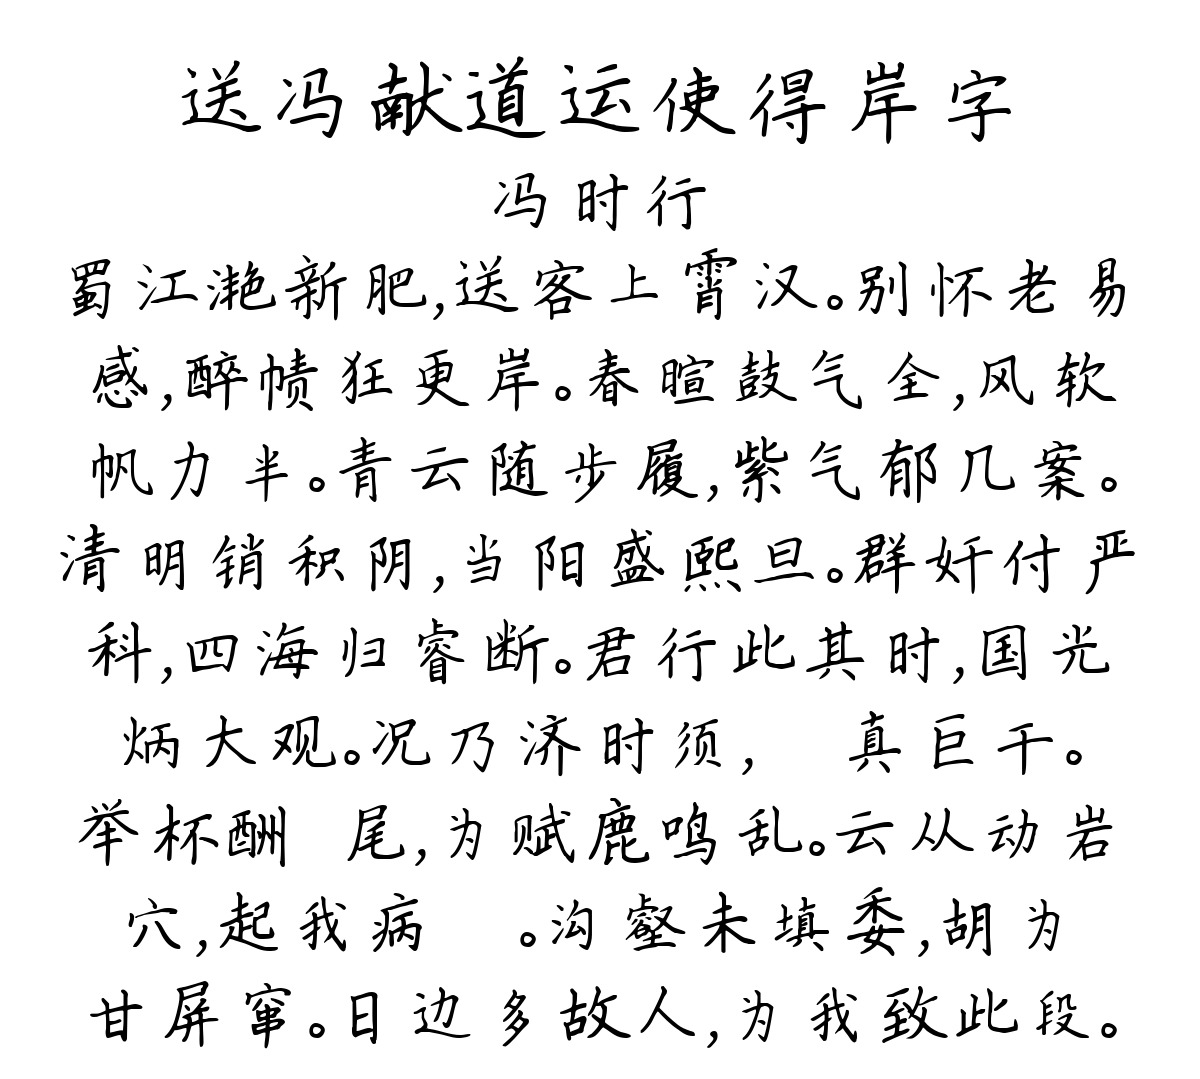 送冯献道运使得岸字
冯时行
蜀江滟新肥,送客上霄汉。别怀老易
感,醉帻狂更岸。春暄鼓气全,风软
帆力半。青云随步履,紫气郁几案。
清明销积阴,当阳盛熙旦。群奸付严
科,四海归睿断。君行此其时,国光
炳大观。况乃济时须, 真巨干。
举杯酬 尾,为赋鹿鸣乱。云从动岩
穴,起我病 。沟壑未填委,胡为
甘屏窜。日边多故人,为我致此段。